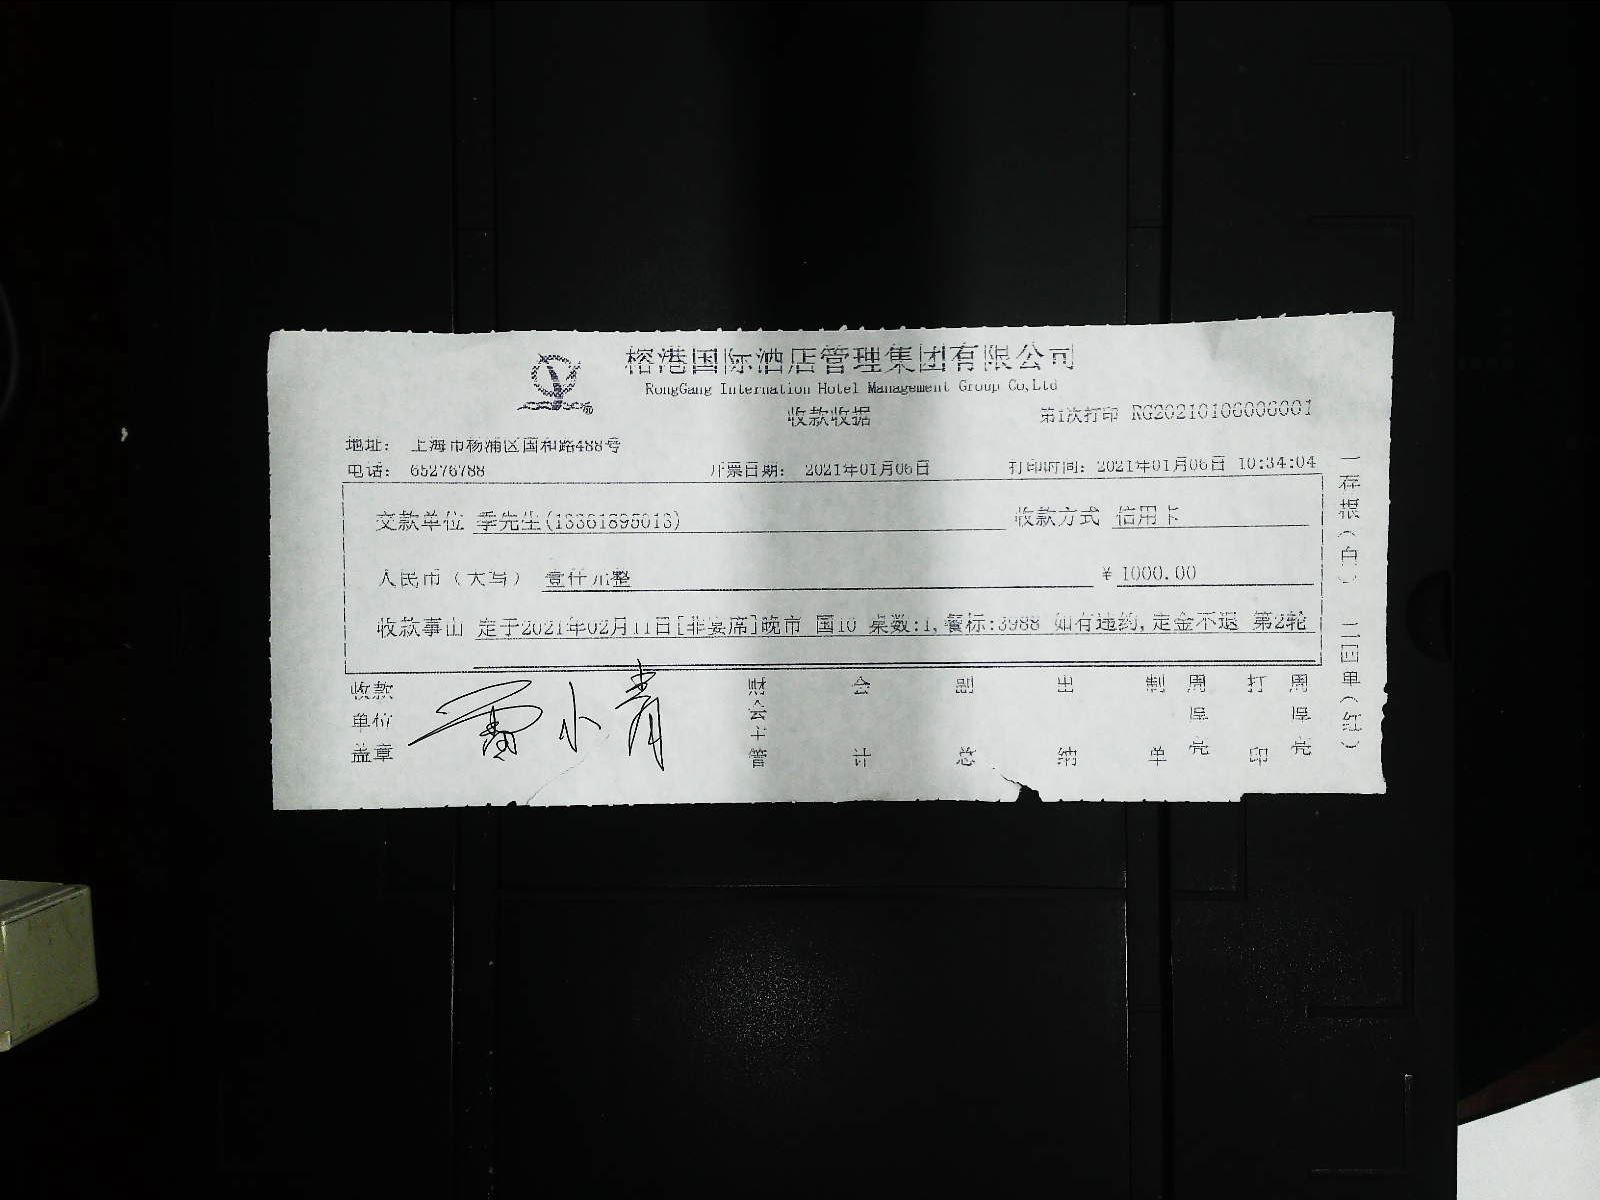 榕港国际酒店管理集团有限公司
RongGang Internation Hotel Management Group Co,Ltd
收款收据
第1次打印 RG20210106006001
地址： 上海市杨浦区国和路488号
电话： 65276788 开票日期： 2021年01月06日 打印时间：2021年01月06日 10:34:04
交款单位 季先生(13361895013) 收款方式 信用卡
人民币（大写） 壹仟元整 ￥1000.00
收款事由 定于2021年02月11日[非宴席]晚市 国10 桌数:1,餐标:3988 如有违约,定金不退 第2轮
收款单位盖章
小青
财会主管
会计
副总
出纳
制单
周厚亮
打印
周厚亮
一存根（白） 二回单（红）